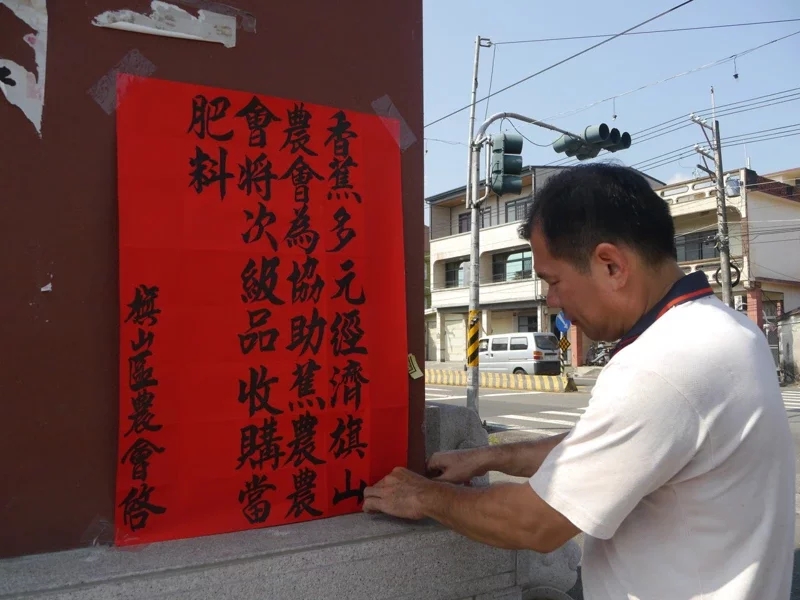 香蕉多元經濟旗山
農會為協助蕉農農
會將次級品收購當
肥料
旗山區農會啓